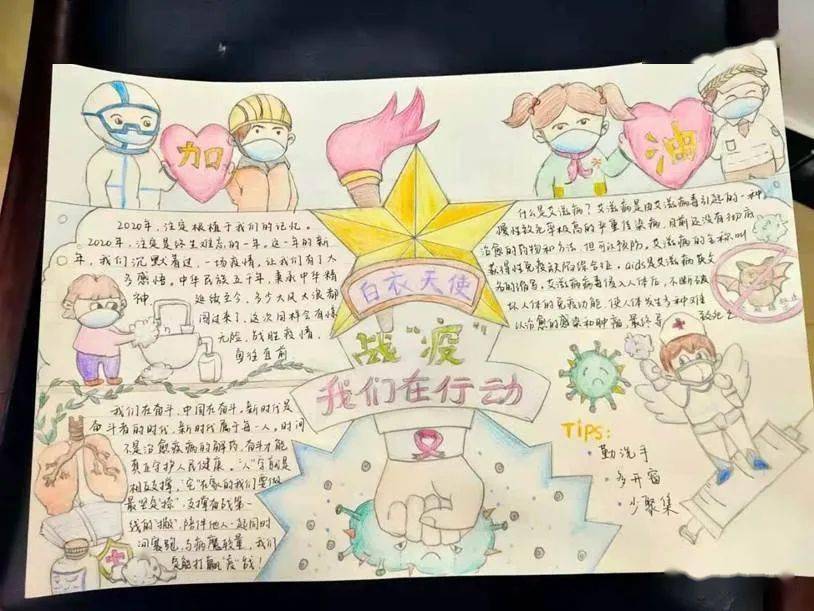 加
油
白衣天使
战“疫”
我们在行动
2020年,注定根植于我们的记忆。
2020年,注定是终生难忘的一年,这一年的新
年,我们沉默着过,一场疫情,让我们有了太
多感悟,中华民族五千年,秉承中华精
神 延续至今,多少大风大浪都
闯过来了,这次同样会有惊
无险,战胜疫情,
勇往直前
我们在奋斗,中国在奋斗,新时代是
奋斗者的时代,新时代属于每一人,时间
不是治愈疫病的解药,奋斗才能
真正守护人民健康。"人"字就是
相互支撑,宅在家的我们要做
最坚实"捺",支撑在战第一
线的"撇",陪伴他人一起同时
间赛跑,与病魔较量,我们
定能打赢"疫"战!
什么是艾滋病?艾滋病是由艾滋病毒引起的一种
慢性致死率极高的严重传染病,目前还没有彻底
治愈的药物和方法,但可以预防,艾滋病的全称叫
获得性免疫缺陷综合征,aids是艾滋病英文
名的缩写,艾滋病病毒侵入人体后,不断破
坏人体的免疫功能,使人体发生多种难
以治愈的感染和肿瘤,最终导 致死亡
Tips:
勤洗手
多开窗
少聚集